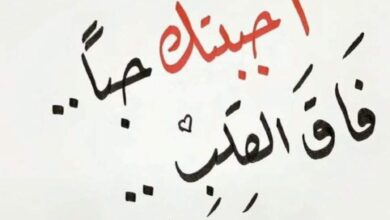 أحببتك حباً ..
فَاقَ القلبِ ..